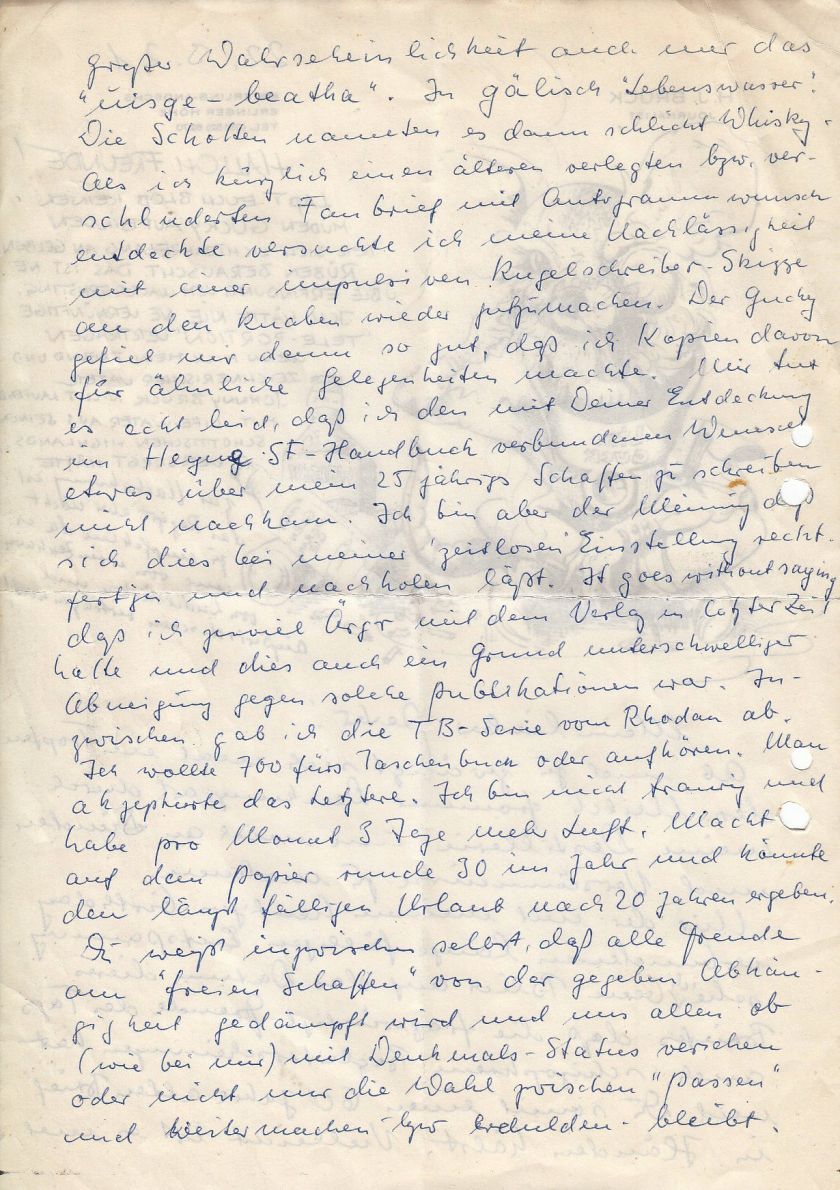 großer Wahrscheinlichkeit auch nur das
"uisge-beatha". In gälisch "Lebenswasser".
Die Schotten nannten es dann schlicht Whisky.
Als ich kürzlich einen älteren verlegten bzw. ver-
schluderten Fanbrief mit Autogrammwunsch
entdeckte versuchte ich meine Nachlässigkeit
mit einer impulsiven Kugelschreiber-Skizze
an den Knaben wieder gutzumachen. Der Gucky
gefiel mir dann so gut, daß ich Kopien davon
für ähnliche Gelegenheiten machte. Mir tut
es echt leid, daß ich den mit Deiner Entdeckung
im Heyne SF-Handbuch verbundenen Wunsch
etwas über mein 25 jährigs Schaffen zu schreiben
nicht nachkam. Ich bin aber der Meinung daß
sich dies bei meiner 'zeitlosen' Einstellung recht-
fertigen und nachholen läßt. It goes without saying
daß ich zuviel Ärger mit dem Verlag in letzter Zeit
hatte und dies auch ein Grund unterschwelliger
Abneigung gegen solche Publikationen war. In-
zwischen gab ich die TB-Serie vom Rhodan ab.
Ich wollte 700 fürs Taschenbuch oder aufhören. Man
akzeptierte das Letztere. Ich bin nicht traurig und
habe pro Monat 3 Tage mehr Luft. Macht
auf dem Papier runde 30 im Jahr und könnte
den längst fälligen Urlaub nach 20 Jahren ergeben.
Du weißt inzwischen selbst, daß alle Freude
am "freien Schaffen" von der gegeben Abhän-
gigkeit gedämpft wird und uns allen ob
(wie bei mir) mit Denkmals-Status versehen
oder nicht nur die Wahl zwischen "passen"
und weitermachen bzw erdulden - bleibt.